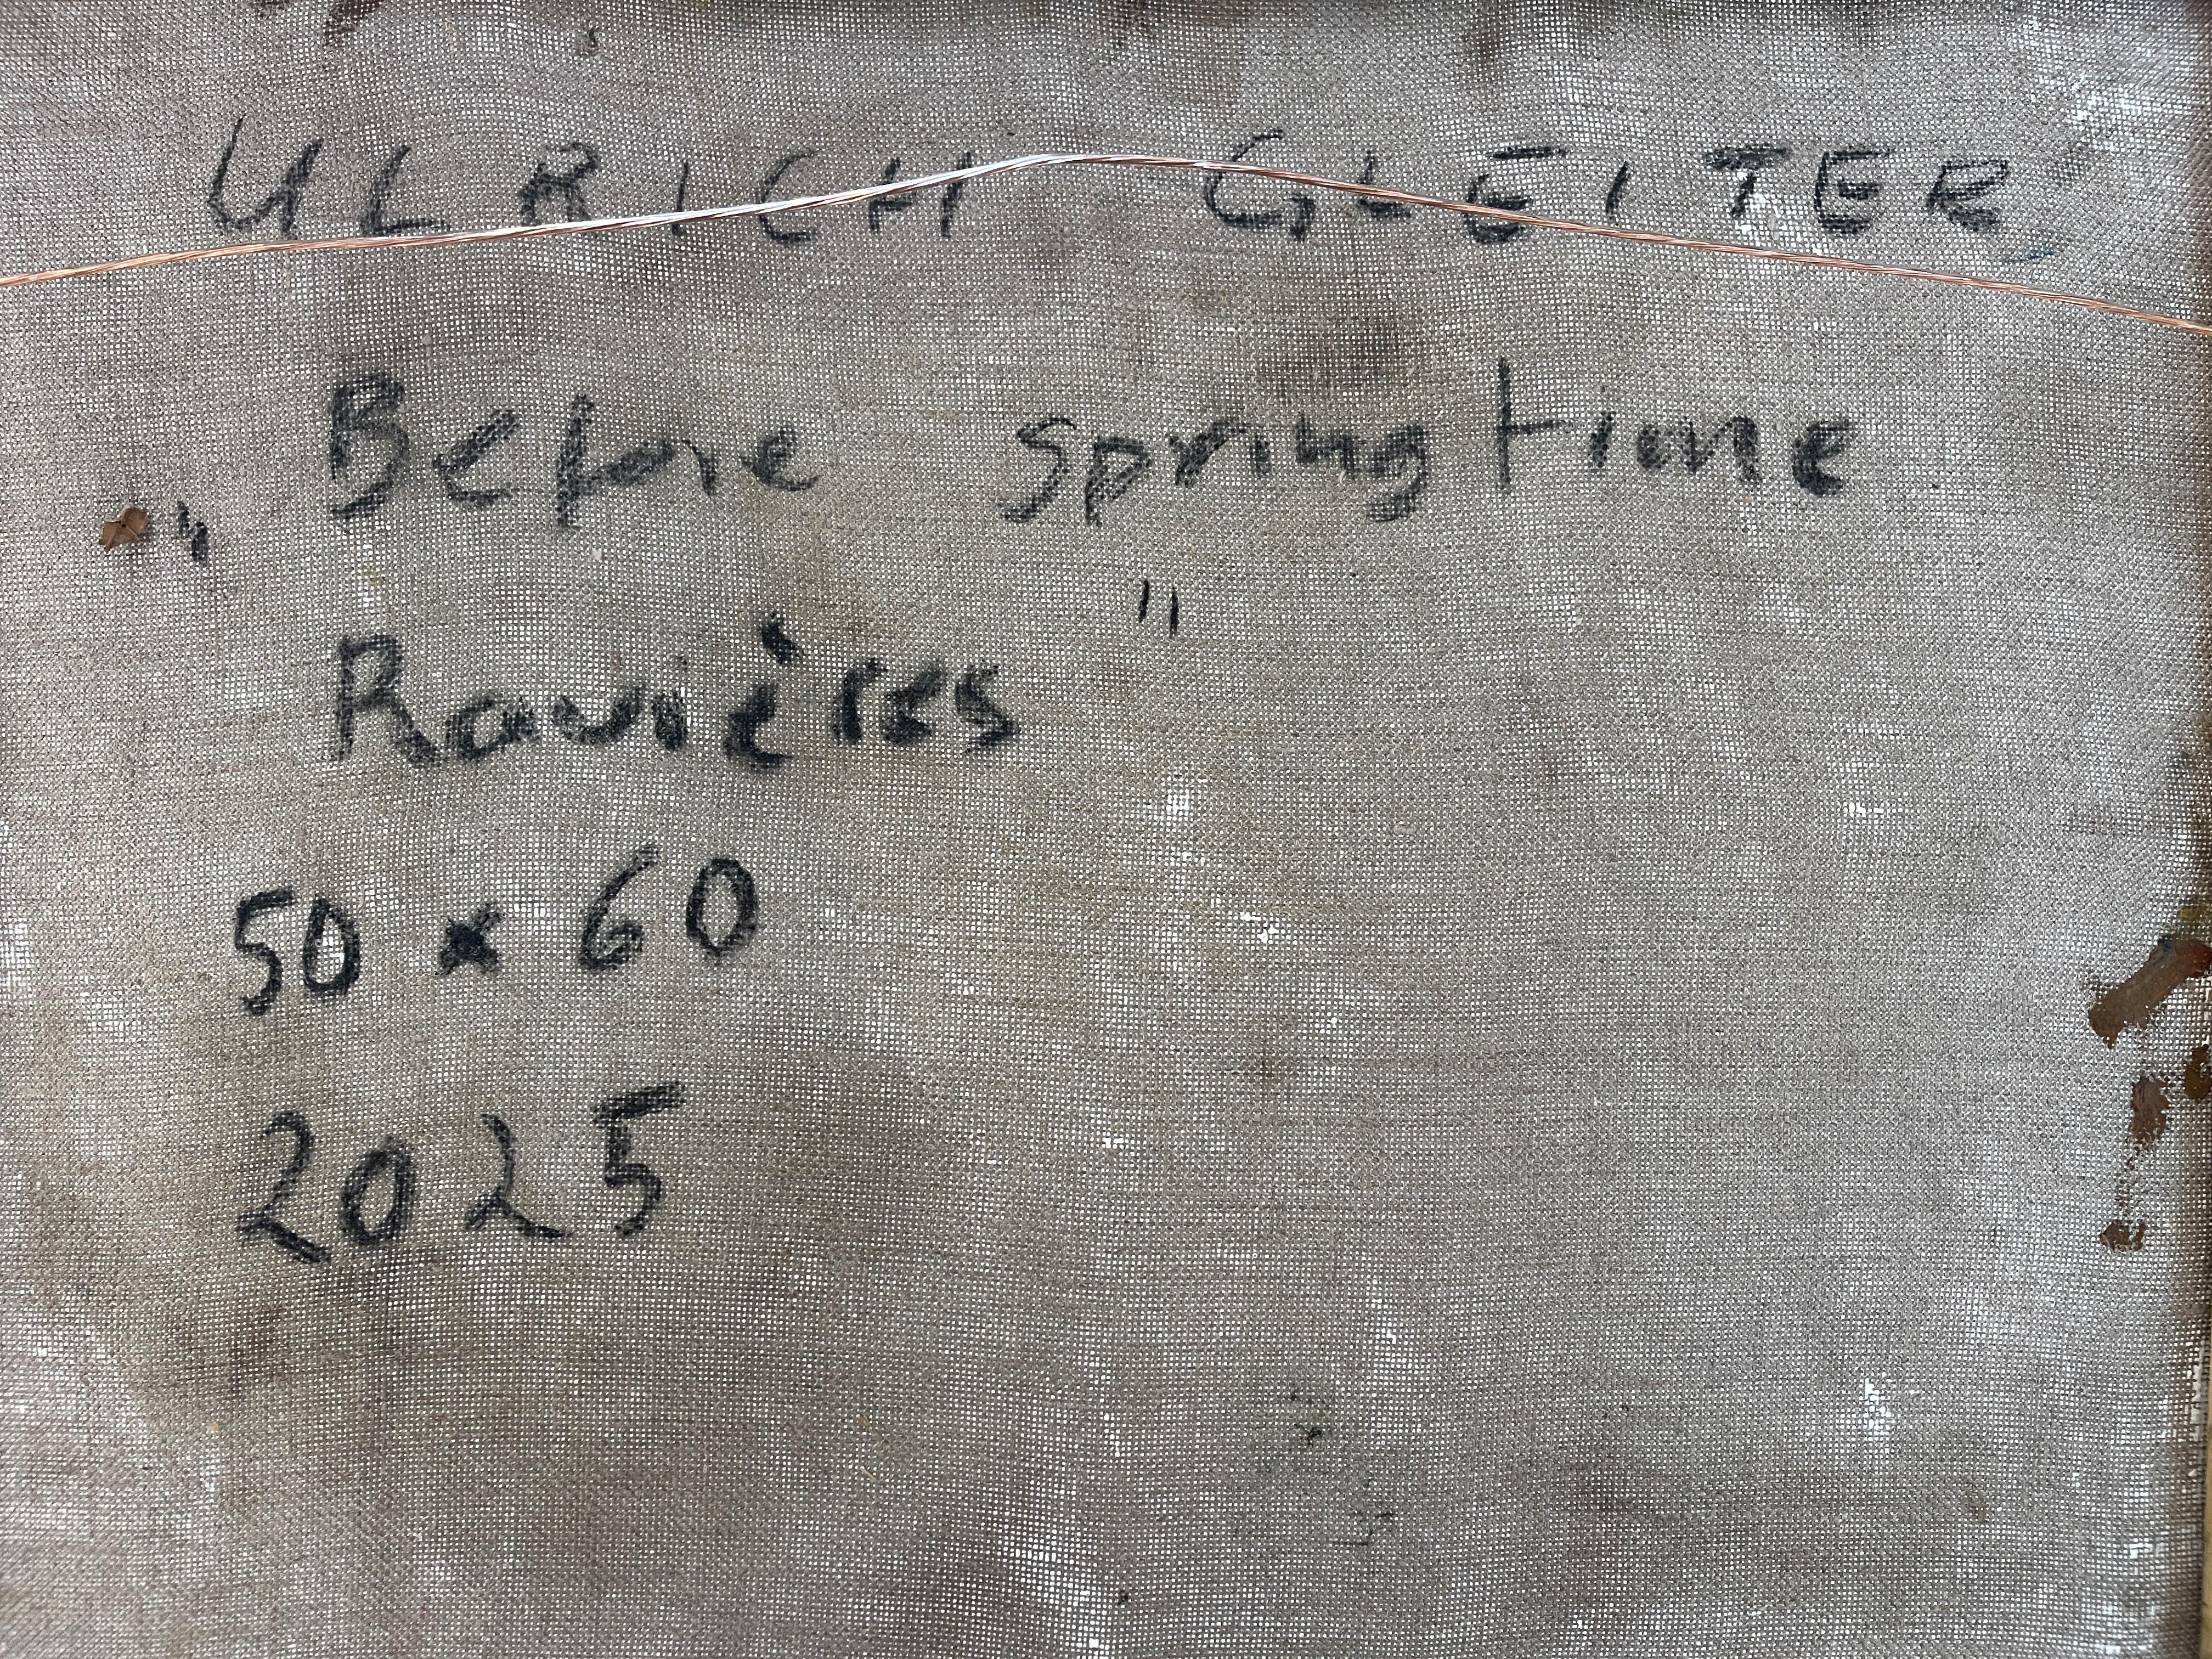 ULRICH GLEITER
„Before springtime
Ravières"
50 x 60
2025